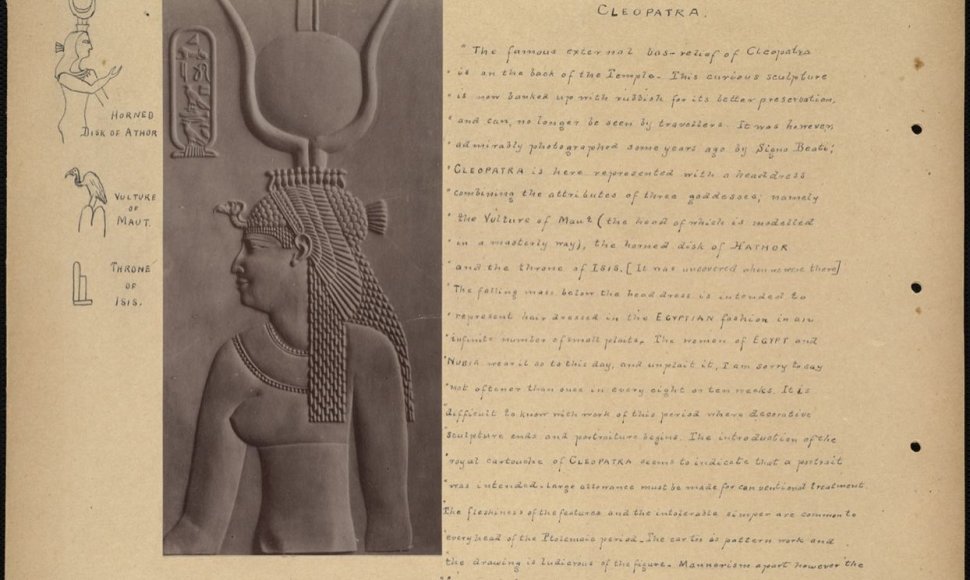 HORNED
DISK OF ATHOR
VULTURE
OF
MAUT.
THRONE
OF
ISIS.
CLEOPATRA.
"The famous external bas-relief of Cleopatra
"is on the back of the Temple. This curious sculpture
"is now banked up with rubbish for its better preservation,
"and can, no longer be seen by travellers. It was however,
"admirably photographed some years ago by Signo Beati;
"CLEOPATRA is here represented with a headdress
"combining the attributes of three goddesses; namely
"the Vulture of Maut (the head of which is modelled
"in a masterly way), the horned disk of HATHOR
"and the throne of ISIS. [It was uncovered when we were there]
"The falling mass below the headdress is intended to
"represent hair dressed in the EGYPTIAN fashion in an
"infinite number of small plaits. The women of EGYPT and
"NUBIA wear it so to this day, and unplait it, I am sorry to say
"not oftener than once in every eight or ten weeks. It is
"difficult to know with work of this period where decorative
"sculpture ends and portraiture begins. The introduction of the
"royal cartouche of CLEOPATRA seems to indicate that a portrait
"was intended. Large allowance must be made for conventional treatment.
"The fleshiness of the features and the intolerable simper are common to
"every head of the Ptolemaic period. The ear too is pattern work and
"the drawing is ludicrous of the figure. Mannerism apart however the